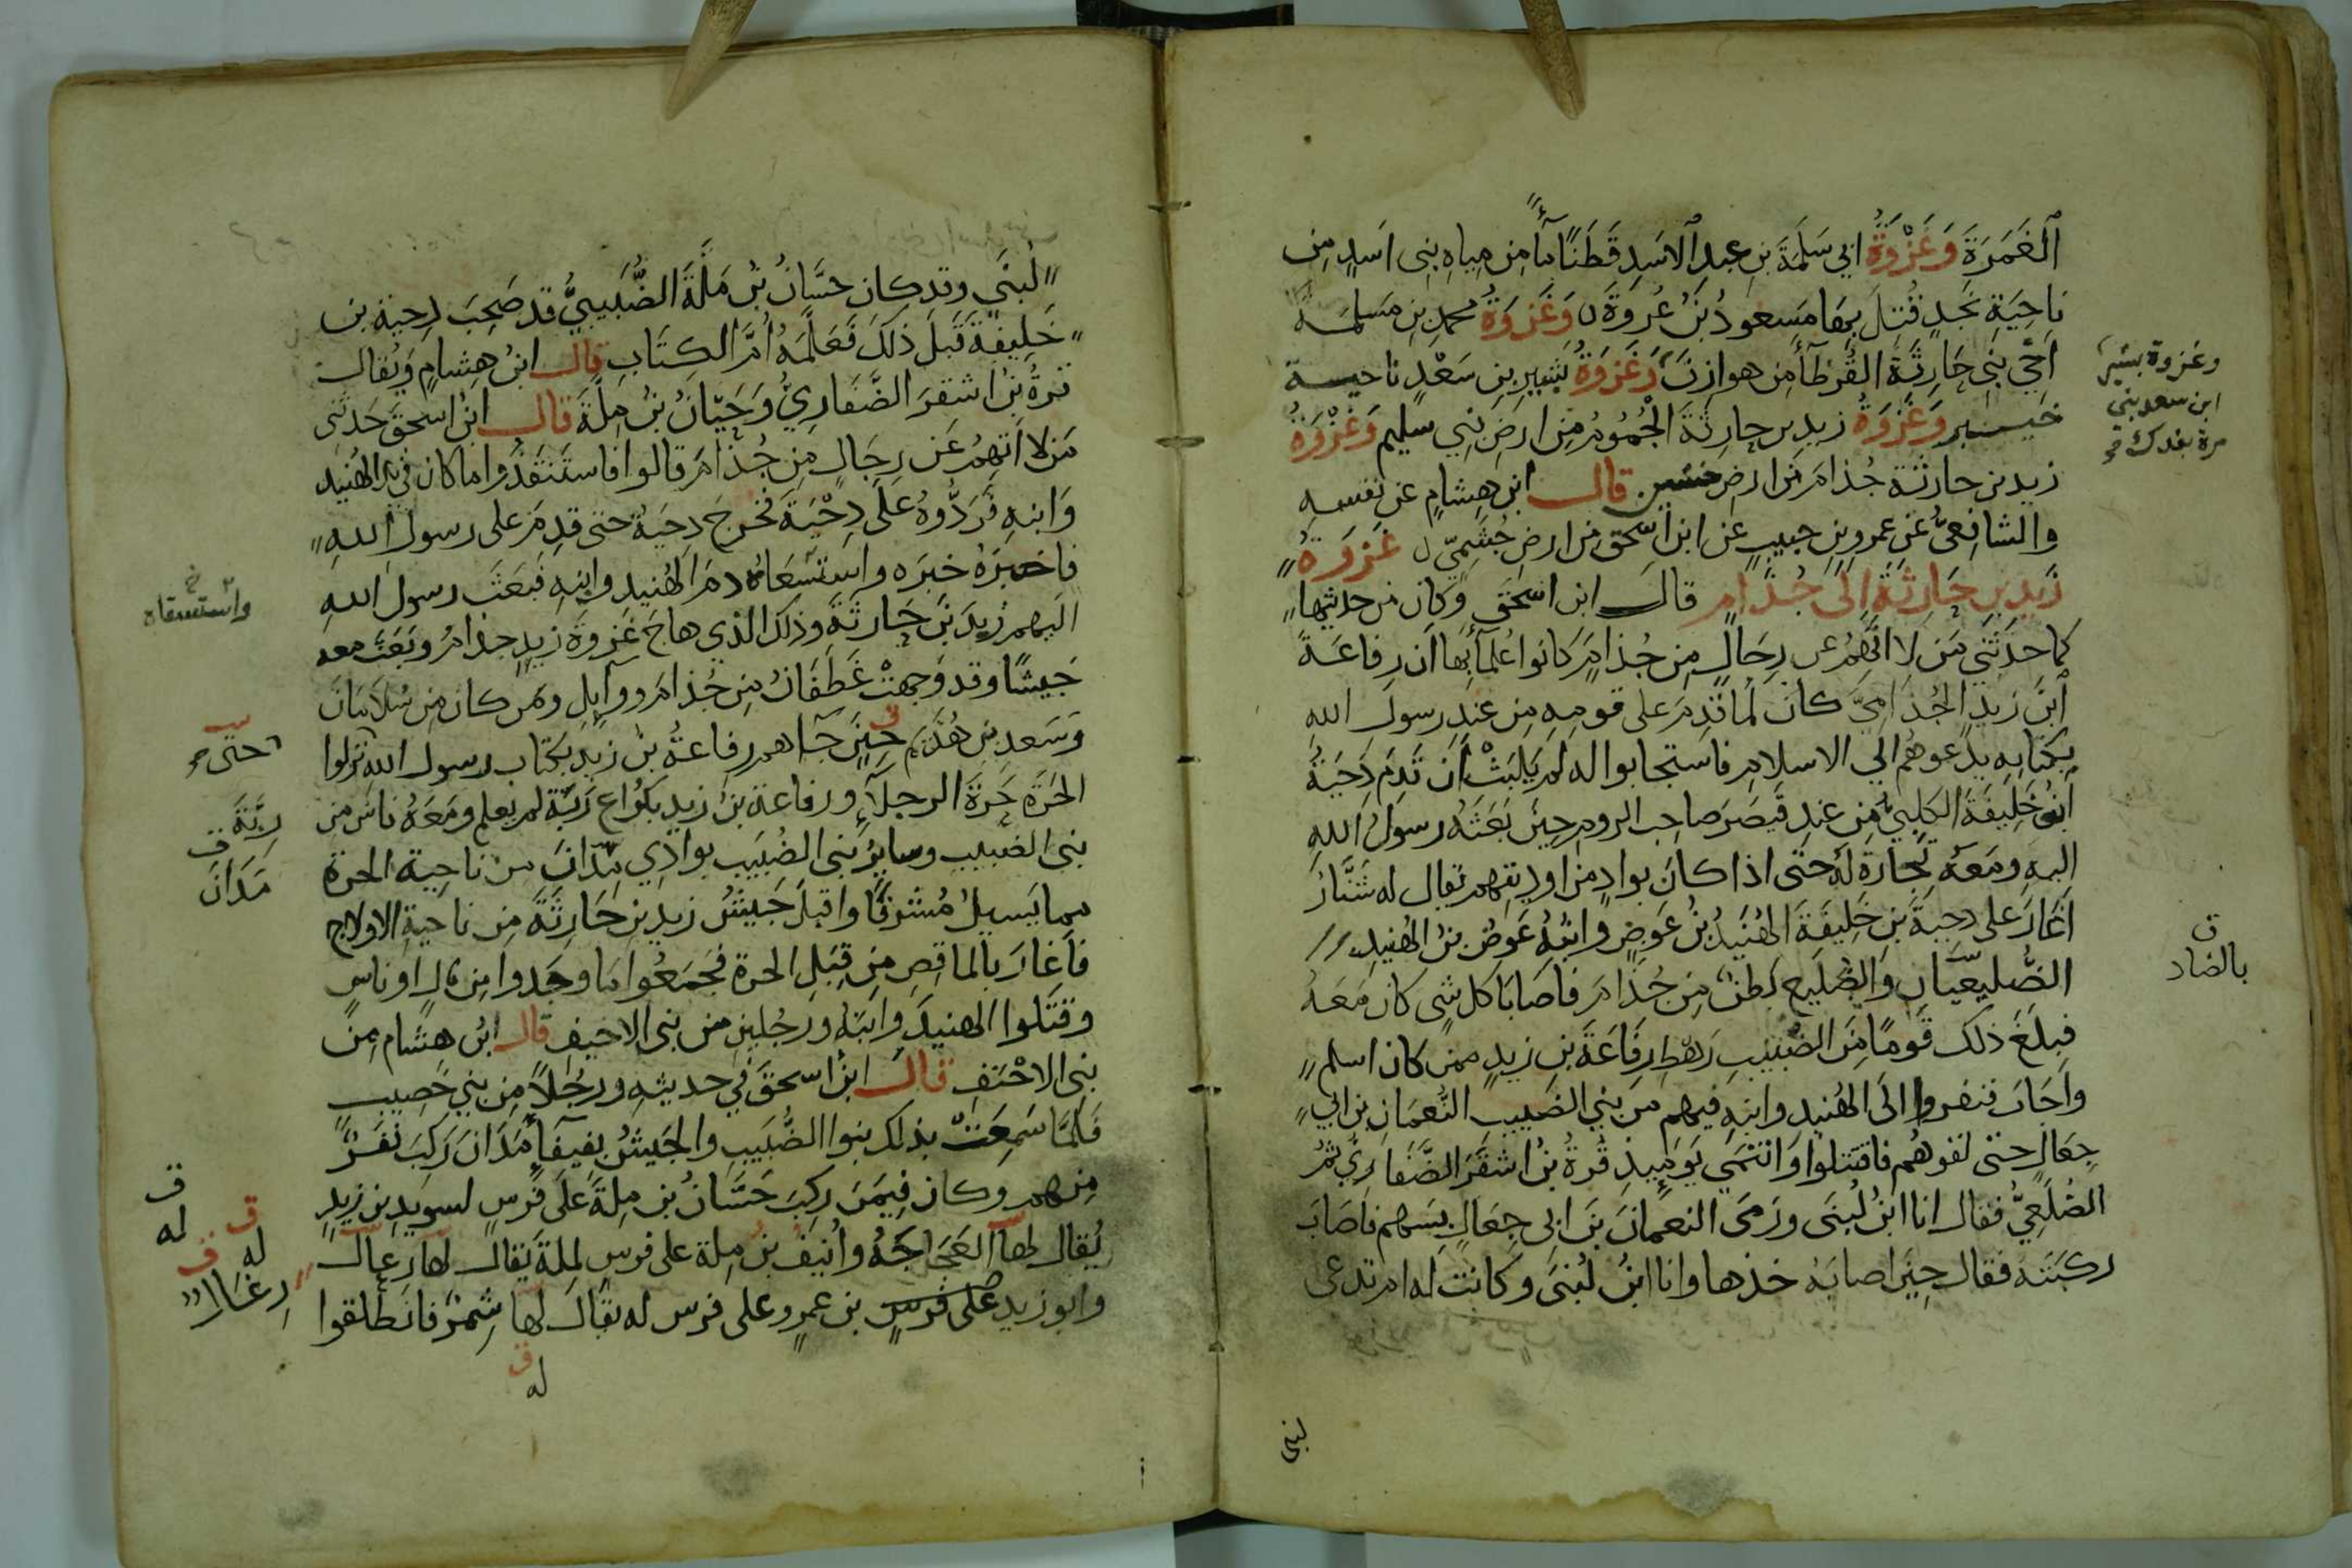 الغَمرَةَ وَغَزْوَةُ ابي سَلَمَةَ بنِ عبد الاسَدِ قَطَنًا مآءً من مِياهِ بنِى اسَدٍ مِن
ناحِيَةِ نجدٍ قُتلَ بهَا مَسعودُ بنُ عُروَةَ وَغَزوَةُ محمدِ بنِ مَسلمة
اخي بَنِى حَارِثَةَ القُرَطآء من هوازنَ وَغَزوَةُ بَشيرِ بن سَعْدٍ ناحيـة
خيـبر وَغَزوَةُ زيدِ بن حارِثَةَ الجُمُومَ مِن ارضِ بَنِي سليم وَغَزْوَةُ
زيد بن حارثَة جُذامَ من ارضِ خشين قال ابن هِشامٍ عن نفسِهِ
والشافِعىُّ عَن عمرِو بنِ حبيبٍ عن ابن اسحٰق من ارضِ حِسْمَى غَزوَةُ
زَيدِ بنِ حَارِثَةَ الَى جُذَام قال ابن اسحٰق وكان من حديثها
كما حدَثَنِي مَن لا اتَّهمُ عن رِجَالٍ مِن جُذامٍ كانوا عُلمآءَ بها ان رِفاعَةَ
ابنَ زيدٍ الجُذاميَّ كان لما قدِمَ على قومِهِ مِن عندِ رسول الله
بكتابِهِ يدعوهُم الي الاسلامِ فاستجابوا له لم يَلبَثْ أن قدِم دِحيَةُ
ابنُ خليفَةَ الكلبىُّ مِن عندِ قَيصَرَ صاحِب الروم حينَ بَعَثَهُ رسولُ الله
اليهِ ومعهُ تِجارَة لهُ حتى اذا كان بوادٍ من اوديتهم يقال له شَنَّارُ
اغَارَ على دحيةَ بن خَلِيفَةَ الهُنَيدُ بنُ عَوضٍ وابنُهُ عَوضُ بنُ الهُنيدِ
الضُّليعيَّانِ والضُّلَيع بَطنٌ مِن جُذَامَ فاصَابَا كل شي كان مَعَهُ
فبلَغَ ذلك قَومًا مِنَ الضُّبَيبِ رَهطِ رِفَاعَةَ بنِ زيدٍ ممن كان اسلم
واجَابَ فنفروا الَى الهُنيدِ وابنِهِ فيهم من بَني الضُّبيبِ النُّعمَانُ بن ابي
جِعَالٍ حتى لقوهُم فاقتتلوا وَانتَمَى يَومَيِذٍ قُرةُ بنُ اشقَرَ الضَّفَارِىّ ثمَّ
الضُلَعِيُّ فقال انا ابنُ لُبنَى ورَمَى النعمانَ بنَ ابي جِعَالٍ بسَهمٍ فاصَابَ
ركبَتَه فقال حِينَ اصابَهُ خذها وانا ابنُ لُبنَى وكانت له ام تدعى
لبنى
وغزوة بشير
ابن سعد بني
مرة بفدك صح
ق
بالضاد
لُبنَي وقد كان حسَّانُ بنُ مَلَّةَ الضُّبَيبيُّ قد صَحِبَ دِحيةَ بن
خَلِيفَةَ قَبلَ ذلكَ فَعَلَّمَهُ أُمَّ الكِتَابِ قال ابنُ هِشامٍ وَيُقال
قرةُ بنُ اشقرَ الضَّفَارِيُّ وَحَيَّانُ بنُ مِلَّةَ قال ابنُ اسحٰقَ حَدثنى
مَن لا اتهمُ عَن رِجَالٍ مِن جُذامَ قالوا فاستَنقَذُوا ما كان في يدِ الهُنيد
وَابنِهِ فَرَدُّوهُ علَى دِحْيَةَ فخرجَ دحيَةُ حتى قدِمَ على رسول اللهِ
فاخبرَهُ خبَرَه واستسعاهُ دمَ الهُنيد وابنِهِ فبَعَثَ رسول الله
اليهم زيدَ بنَ حَارثَةَ وذلك الذي هاجَ غَزوةَ زيدٍ جذامَ وبَعَثَ معه
جَيشًا وقد وَجهتْ غَطَفَانُ مِن جُذامَ ووآيِلٍ ومَن كان مِن سُلامَانَ
وَسَعدِ بنِ هُذَيم حِينَ جآهم رِفاعةُ بنُ زيدٍ بكتاب رسول الله نزلوا
الحَرَّةَ حَرَّةَ الرجلآءِ ورفاعة بنُ زيدٍ بكُراع رَبَّةَ لم يعلم ومَعَهُ ناس من
بنى الضبيبِ وسايِرُ بَنى الضُبَيبِ بوادِي مَدَانَ من ناحِية الحرة
مما يَسيلُ مُشرِقًا واقبلَ جَيشُ زيدِ بن حَارِثَةَ مِن ناحيةِ الاولاج
فاَغارَ بالماقِصِ مِن قِبَلِ الحرة فجَمَعُوا ما وجَدوا مِن مالٍ او ناسٍ
وقتَلوا الهنيدَ وابنَه ورجُلينِ من بنى الاخيف قال ابنُ هشام مِن
بنِى الاحْنَفِ قال ابنُ اسحٰقَ في حديثِهِ ورجُلاً مِن بنِي خَصِيبٍ
فلمَّا سَمعَتْ بذلك بنوا الضُّبَيبِ والجَيشُ بفَيفَآءِ مَدَانَ رَكبَ نَفَرٌ
مِنهم وكان فِيمَن ركِبَ حَسَّانُ بن مِلةَ علَى فَرسٍ لسويدِ بن زيدٍ
يُقال لها العَجَاجَةُ وأُنَيفُ بنُ مِلة على فرس لِملةَ يقال لها رِغال
وابو زيدِ على فرسٍ بن عمرٍو على فرس له يقال لها شِمرٌ فانطلقوا
خ
واستسقاه
حتى صح
رِبَّةَ ق
مَدَانَ
ق
له
ق
له
ق
رِغَال
ق
له